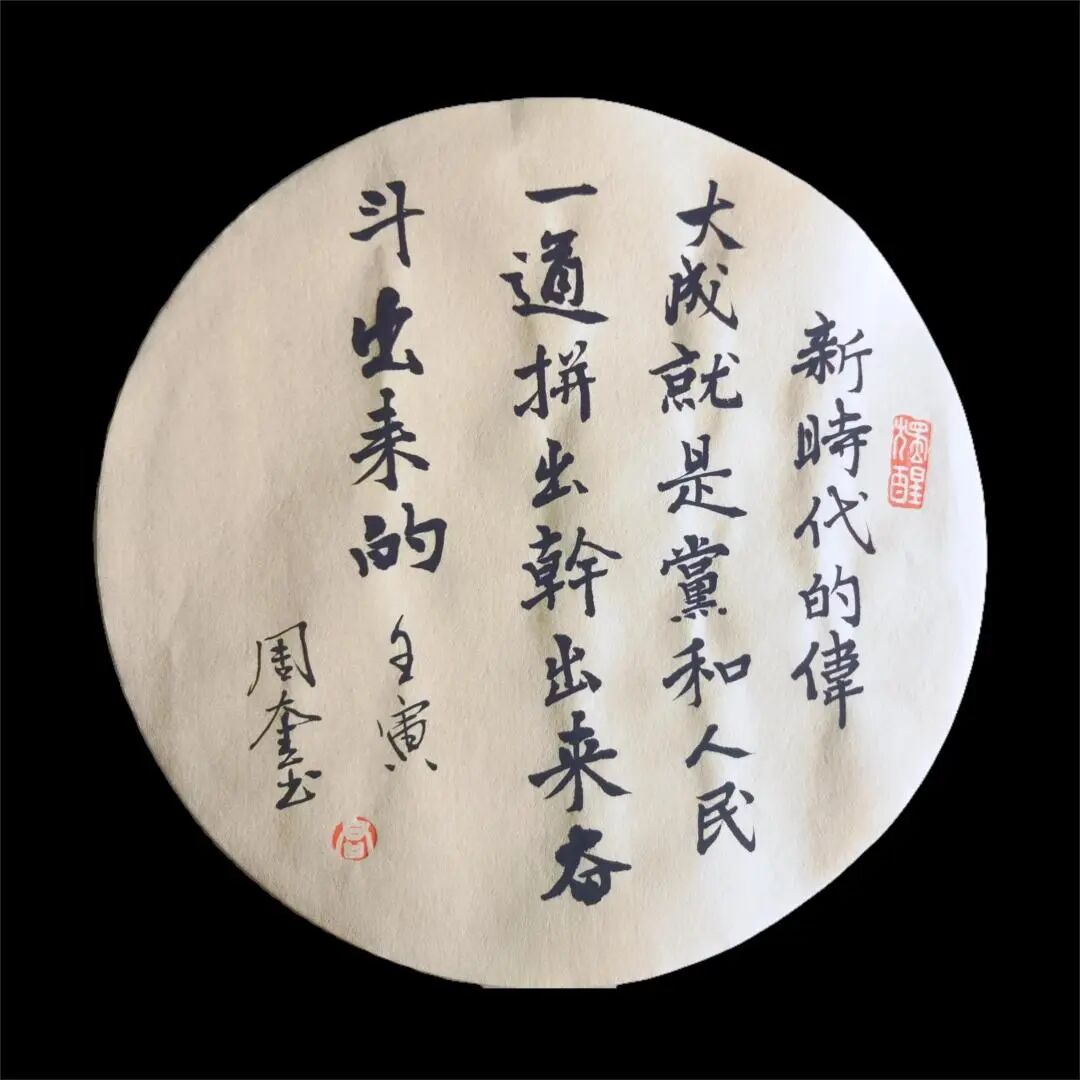 新時代的偉
大成就是黨和人民
一道拼出幹出来奋
斗出来的
壬寅
周奎书